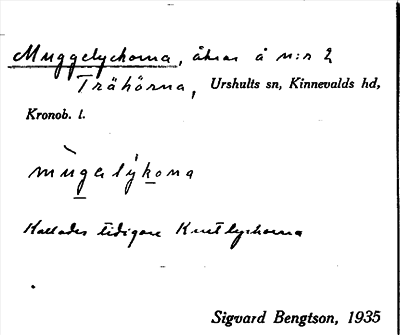 Muggelyckorna, åkrar å n:r 2
Trähörna, Urshults sn, Kinnevalds hd,
Kronob. l.
mùgalýkona
Kallades tidigare Knutlyckorna
Sigvard Bengtson, 1935